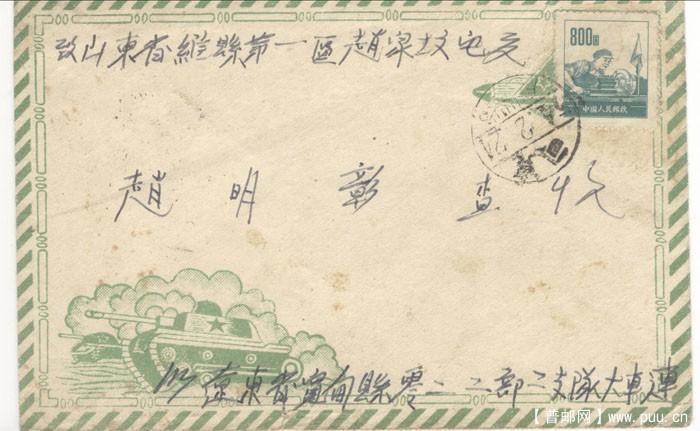 致山東省維縣第一區趙家坟屯交
800圓
中国人民邮政
趙明彰 查收
遼東省寬甸縣零二二部二支隊大車連
【普邮网】www.puu.cn